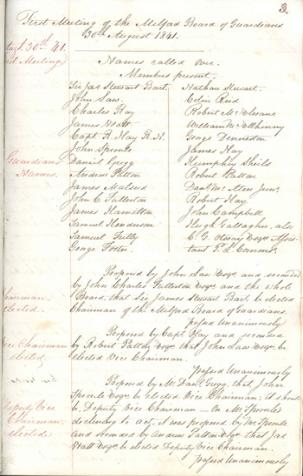 3.
First Meeting of the Milford Board of Guardians
30th August 1841.
Augt. 30th 41.
1st Meeting.
Names called over.
Members present.
Sir Jas Stewart Bart.
John Law.
Charles Hay
James Watt
Capt. R. Hay R.N.
John Sproule
Daniel Gregg
Andrew Patton
James
John C. Fullerton
James Hamilton
Samuel Henderson
Samuel Kelly
George Foster.
Nathan Stewart.
Colin Reid
Robert
William
George Denneston
James Hay
Humphrey Sheils
Robert Patton
Robert Hay
John Campbell.
Hugh Gallagher, also
C. G. Otway Esqr Assis-
tant P. L. Commr.
Guardians
Names.
Proposed by John Law Esqr and seconded
by John Charles Fullerton Esqr and the whole
Board, that Sir James Stewart Bart. be elected
Chairman of the Milford Board of Guardians.
passed Unanimously
Chairman
elected.
Proposed by Capt Hay and seconded
by Robert Patton Esqr that John Law Esqr be
elected Vice Chairman.
passed Unanimously
Vice Chairman
elected.
Proposed by Mr Danl Gregg, that John
Sproule Esqr be elected Vice Chairman; it should
be, Deputy Vice Chairman — On Mr Sproule
declining to act, it was proposed by Mr Sproule
and seconded by Andrew Patton Esqr that Jas
Watt Esqr be elected Deputy Vice Chairman.
passed Unanimously
Deputy Vice
Chairman
elected.